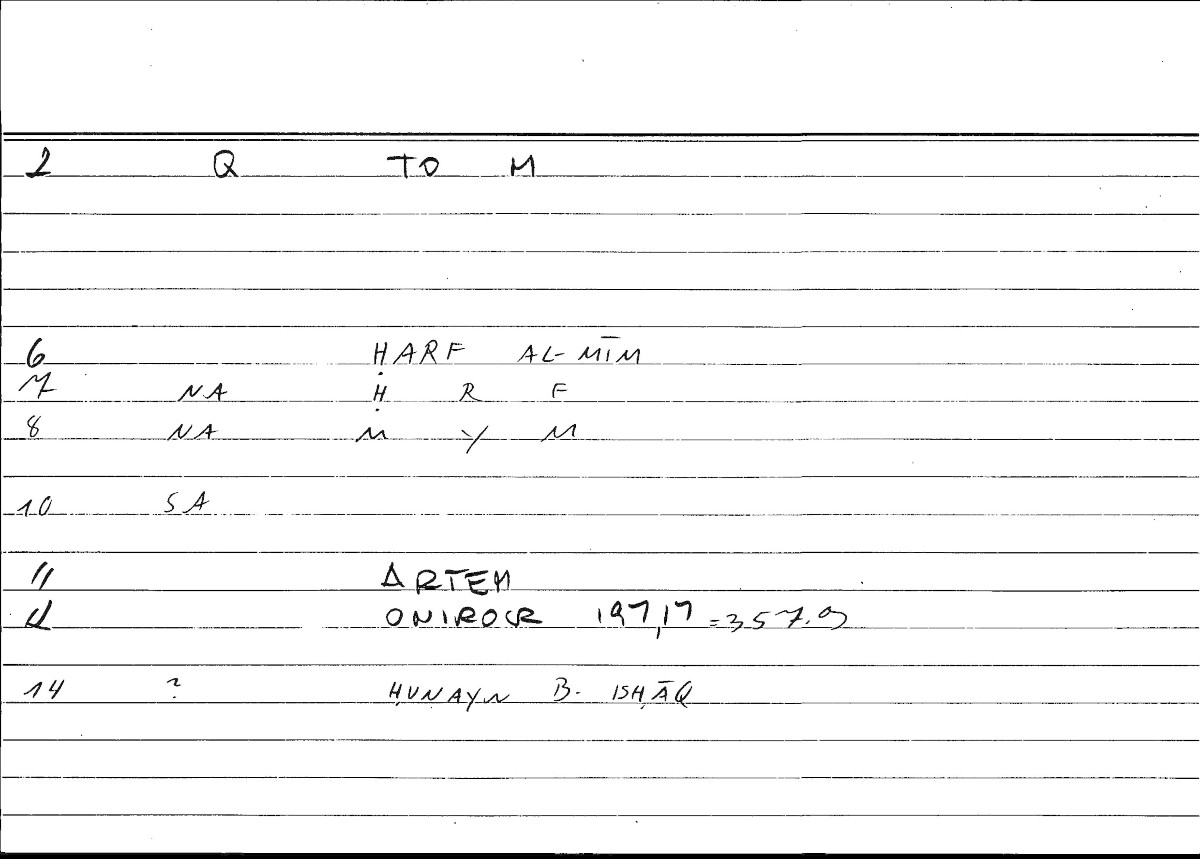 2 Q TO M
6 ḤARF AL-MĪM
7 NA Ḥ R F
8 NA M Y M
10 SA
11 ARTEM
12 ONIROCR 197,17 = 357.9
14 ? ḤUNAYN B. ISḤĀQ